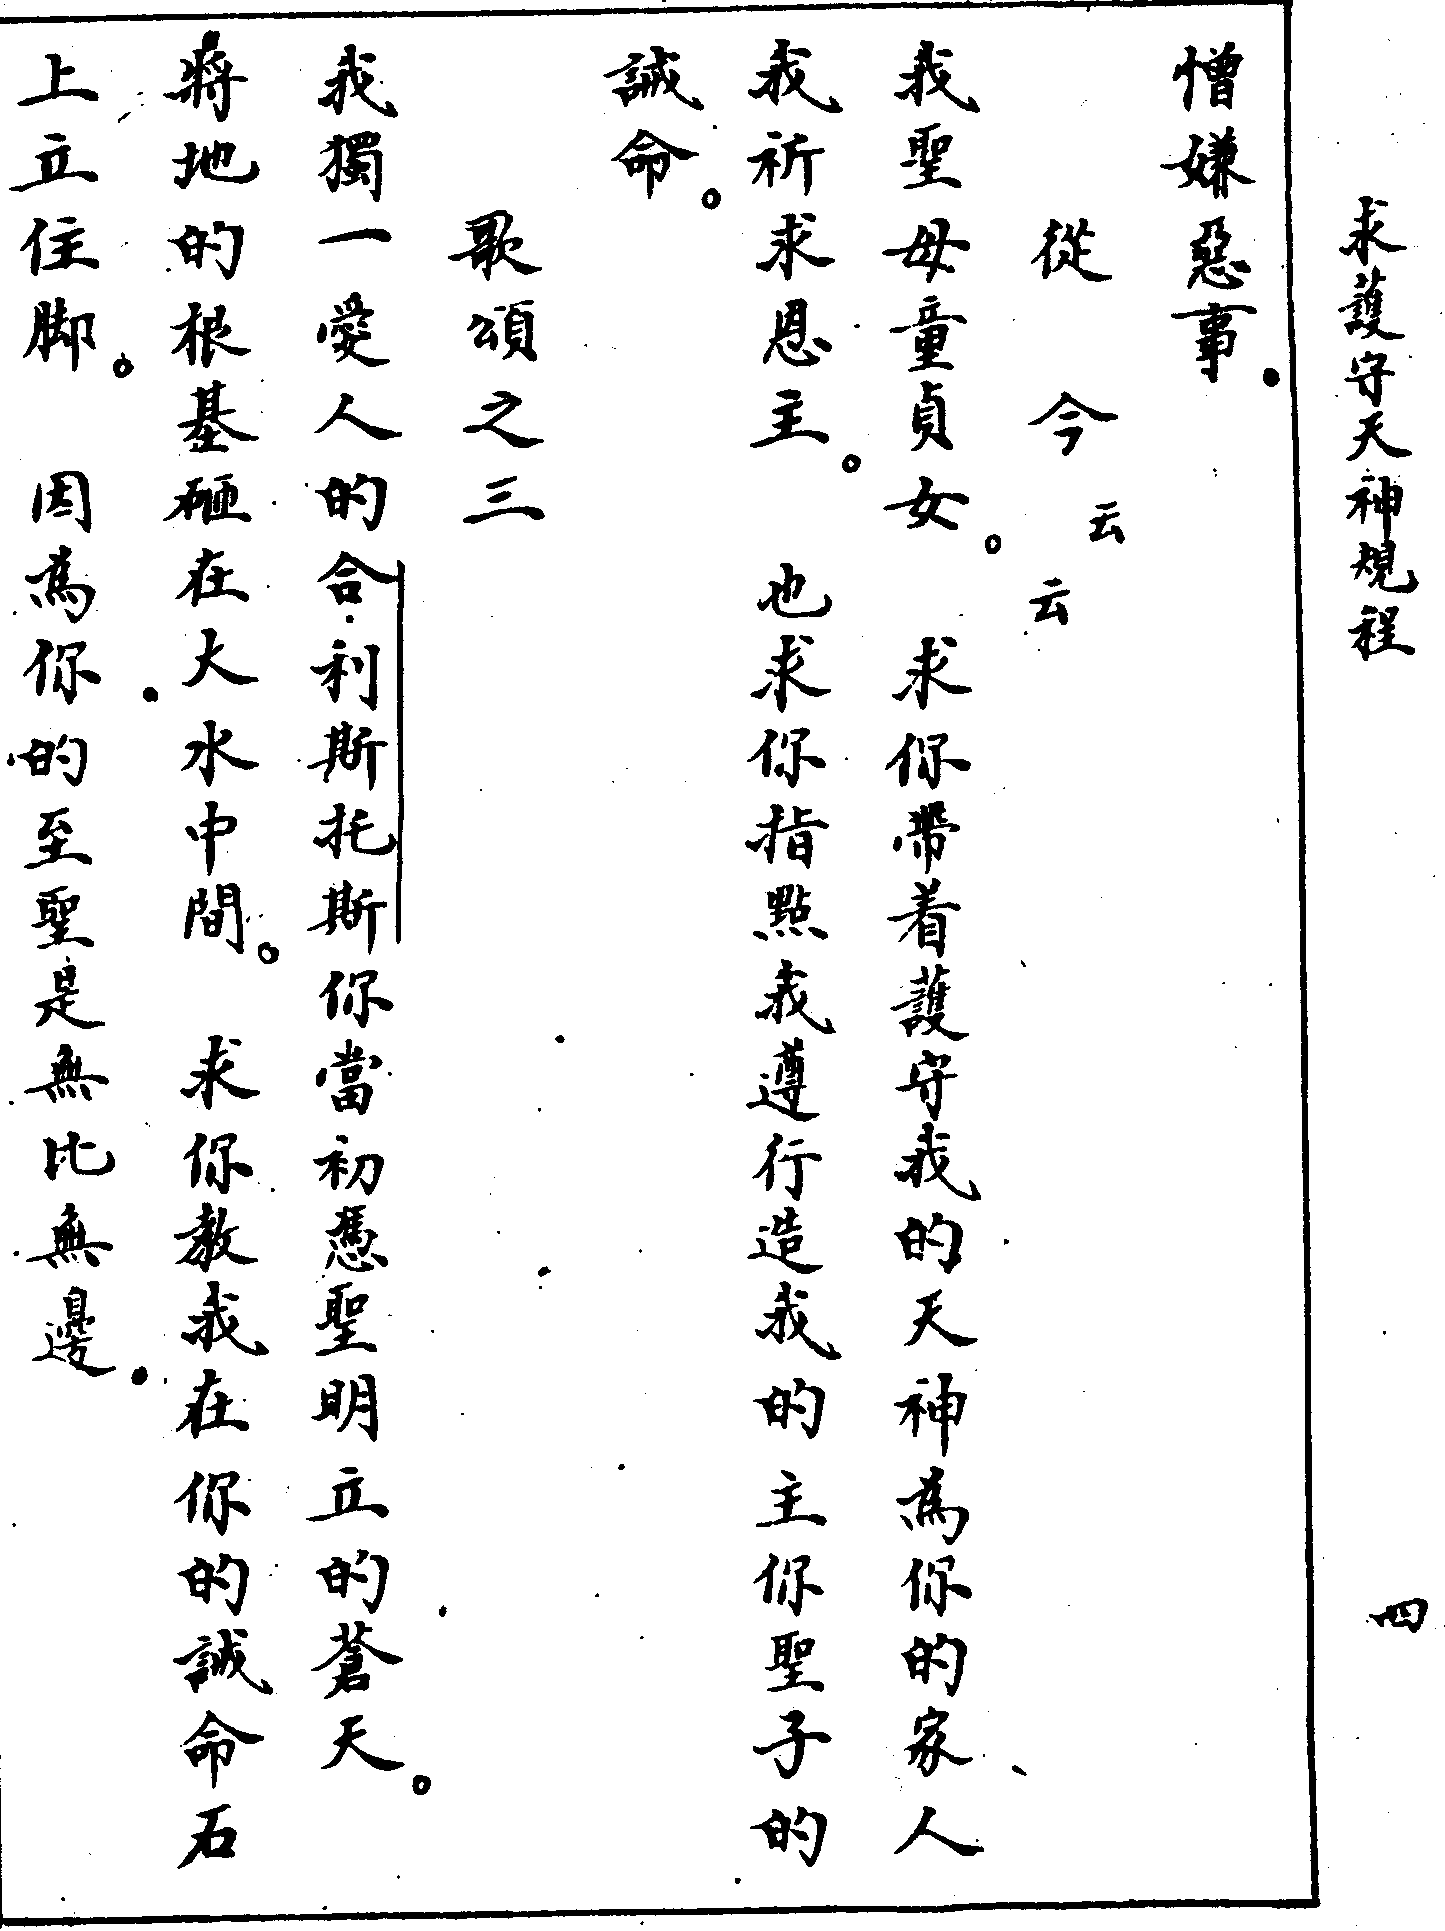 求護守天神規程 四
憎嫌惡事.
從今云云
我聖母童貞女。 求你帶着護守我的天神為你的家人
我祈求恩主。 也求你指點我遵行造我的主你聖子的
誡命。
歌頌之三
我獨一愛人的合利斯托斯你當初憑聖明立的蒼天。
將地的根基砸在大水中間。 求你教我在你的誡命石
上立住脚。 因為你的至聖是無比無邊.